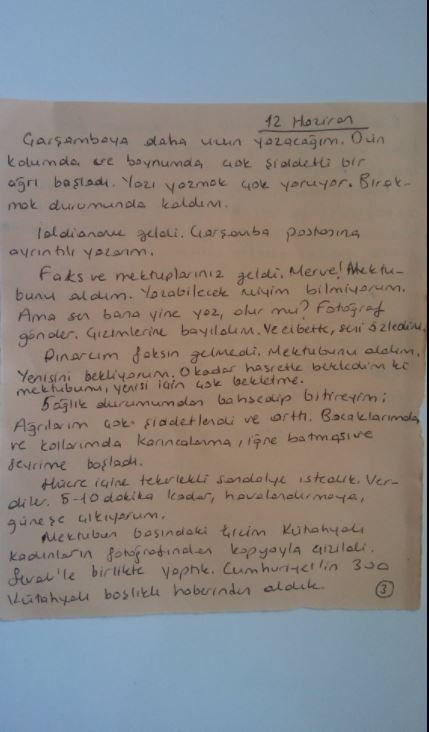 12 Haziran
Çarşambaya daha uzun yazacağım. Dün
kolumda ve boynumda çok şiddetli bir
ağrı başladı. Yazı yazmak çok yoruyor. Bırak-
mak durumunda kaldım.
iddianame geldi. Çarşamba postasına
ayrıntılı yazarım.
Faks ve mektuplarınız geldi. Merve! Mektu-
bunu aldım. Yazabilecek miyim bilmiyorum.
Ama sen bana yine yaz, olur mu? Fotoğraf
gönder. Çizimlerine bayıldım. Ve elbette, seni özledim.
Pınarcım faksın gelmedi. Mektubunu aldım.
Yenisini bekliyorum. O kadar hasretle bekledim ki
mektubunu, yenisi için çok bekletme.
Sağlık durumumdan bahsedip bitireyim;
Ağrılarım çok şiddetlendi ve arttı. Bacaklarımda
ve kollarımda karıncalanma, iğne batması ve
seyrime başladı.
Hücre içine tekerlekli sandalye istedik. Ver-
diler. 5-10 dakika kadar, havalandırmaya,
güneşe çıkıyorum.
Mektubun başındaki Kütahyalı
kadınların fotoğrafından kopyayla çizildi.
birlikte yaptık. Cumhuriyet'in 300
Kütahyalı başlıklı haberinden aldık. 3